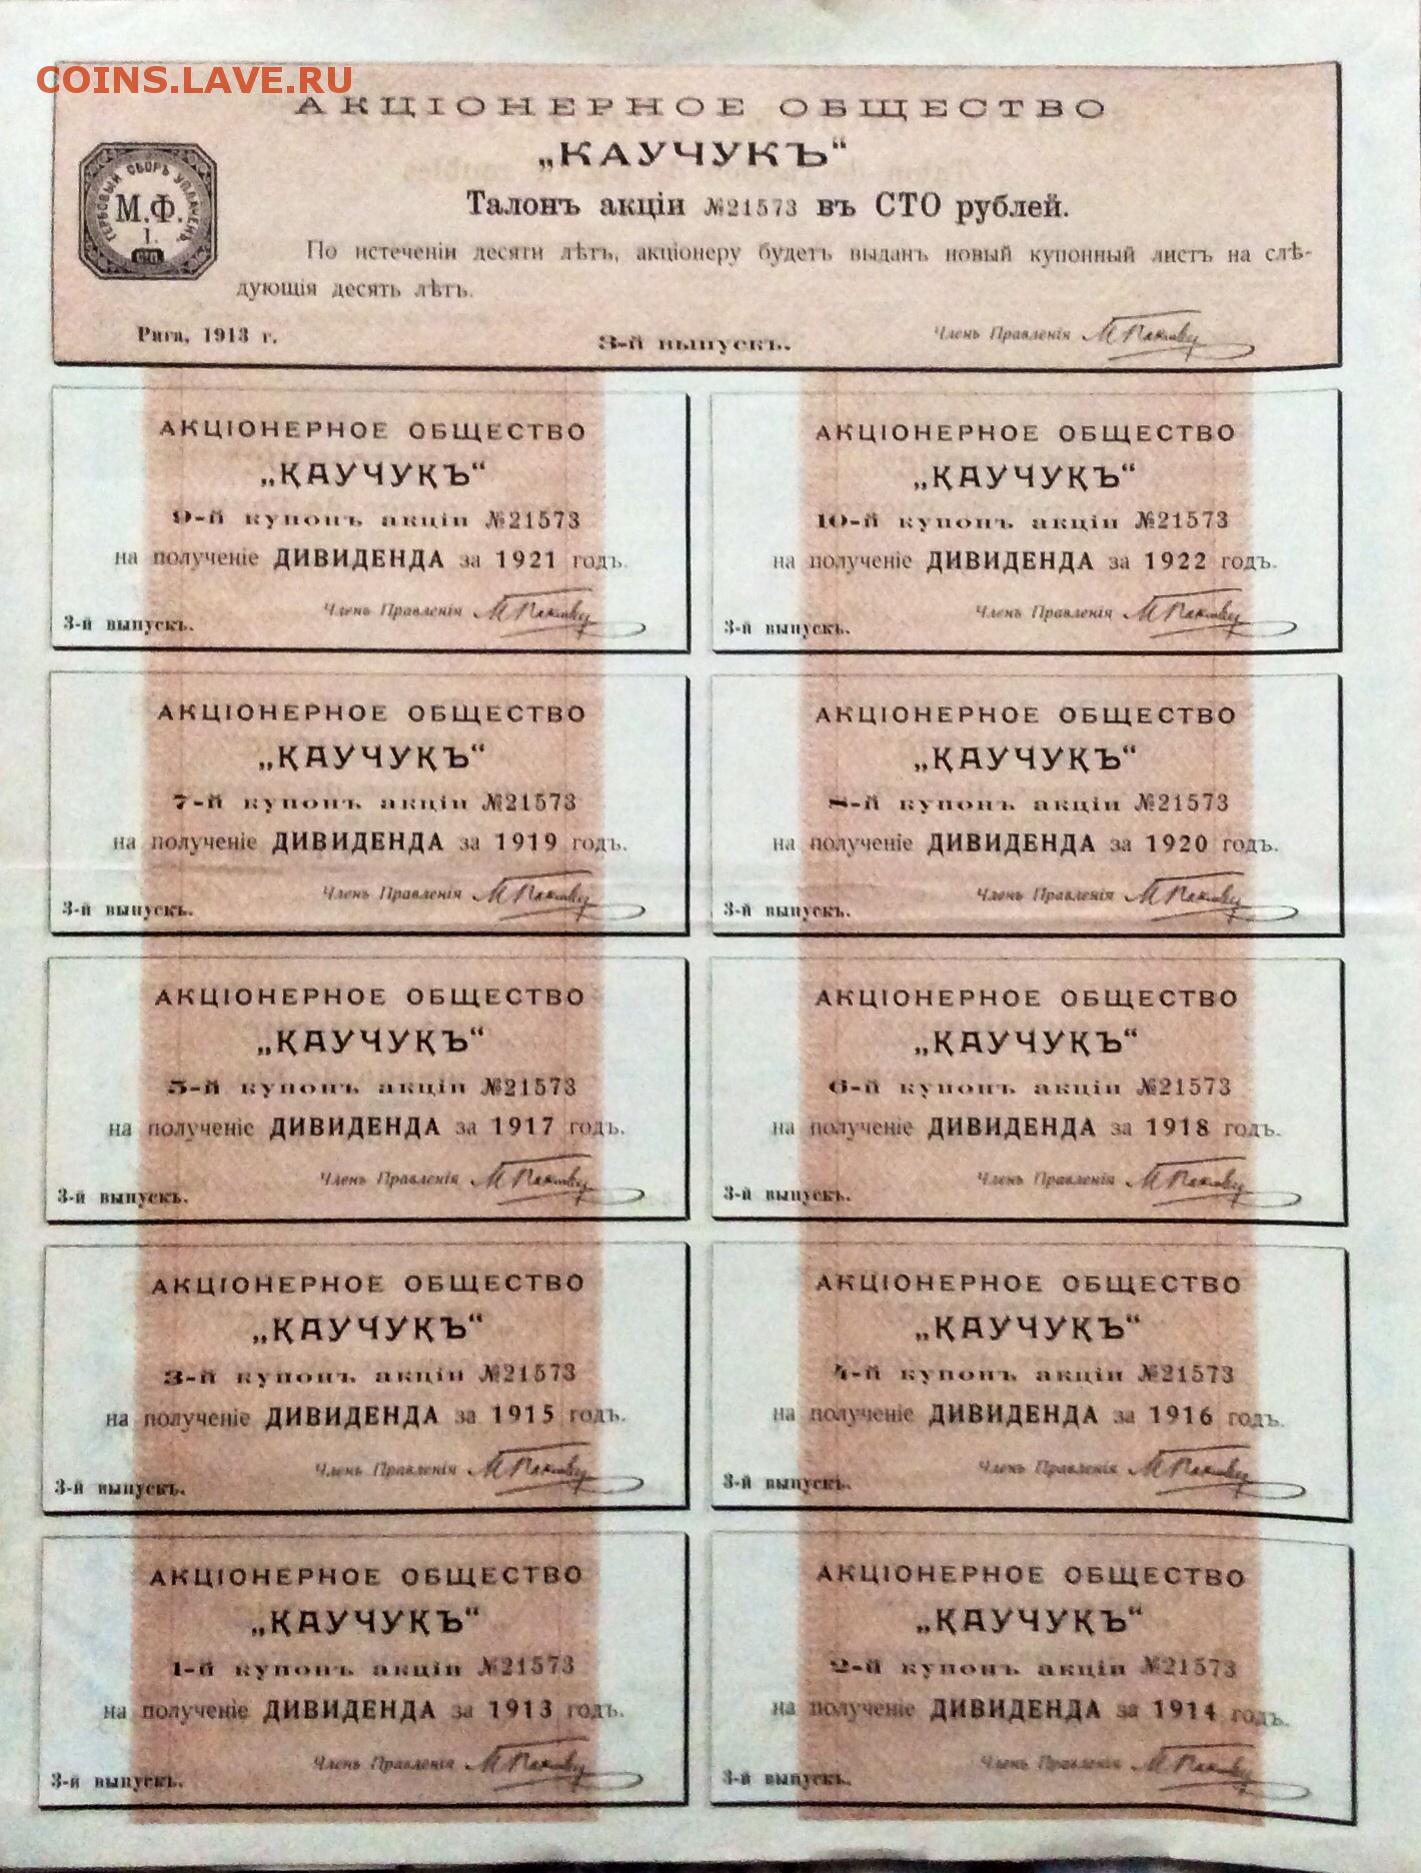 COINS.LAVE.RU
АКЦІОНЕРНОЕ ОБЩЕСТВО
„КАУЧУКЪ“
Талонъ акціи №21573 въ СТО рублей.
По истеченіи десяти лѣтъ, акціонеру будетъ выданъ новый купонный листъ на слѣ-
дующія десять лѣтъ.
ГЕРБОВЫЙ СБОРЪ УПЛАЧЕНЪ.
М.Ф.
1.
Рига, 1913 г.
3-й выпускъ.
Членъ Правленія
АКЦІОНЕРНОЕ ОБЩЕСТВО
„КАУЧУКЪ“
9-й купонъ акціи №21573
на полученіе ДИВИДЕНДА за 1921 годъ.
Членъ Правленія
3-й выпускъ.
АКЦІОНЕРНОЕ ОБЩЕСТВО
„КАУЧУКЪ“
10-й купонъ акціи №21573
на полученіе ДИВИДЕНДА за 1922 годъ.
Членъ Правленія
3-й выпускъ.
АКЦІОНЕРНОЕ ОБЩЕСТВО
„КАУЧУКЪ“
7-й купонъ акціи №21573
на полученіе ДИВИДЕНДА за 1919 годъ.
Членъ Правленія
3-й выпускъ.
АКЦІОНЕРНОЕ ОБЩЕСТВО
„КАУЧУКЪ“
8-й купонъ акціи №21573
на полученіе ДИВИДЕНДА за 1920 годъ.
Членъ Правленія
3-й выпускъ.
АКЦІОНЕРНОЕ ОБЩЕСТВО
„КАУЧУКЪ“
5-й купонъ акціи №21573
на полученіе ДИВИДЕНДА за 1917 годъ.
Членъ Правленія
3-й выпускъ.
АКЦІОНЕРНОЕ ОБЩЕСТВО
„КАУЧУКЪ“
6-й купонъ акціи №21573
на полученіе ДИВИДЕНДА за 1918 годъ.
Членъ Правленія
3-й выпускъ.
АКЦІОНЕРНОЕ ОБЩЕСТВО
„КАУЧУКЪ“
3-й купонъ акціи №21573
на полученіе ДИВИДЕНДА за 1915 годъ.
Членъ Правленія
3-й выпускъ.
АКЦІОНЕРНОЕ ОБЩЕСТВО
„КАУЧУКЪ“
4-й купонъ акціи №21573
на полученіе ДИВИДЕНДА за 1916 годъ.
Членъ Правленія
3-й выпускъ.
АКЦІОНЕРНОЕ ОБЩЕСТВО
„КАУЧУКЪ“
1-й купонъ акціи №21573
на полученіе ДИВИДЕНДА за 1913 годъ.
Членъ Правленія
3-й выпускъ.
АКЦІОНЕРНОЕ ОБЩЕСТВО
„КАУЧУКЪ“
2-й купонъ акціи №21573
на полученіе ДИВИДЕНДА за 1914 годъ.
Членъ Правленія
3-й выпускъ.